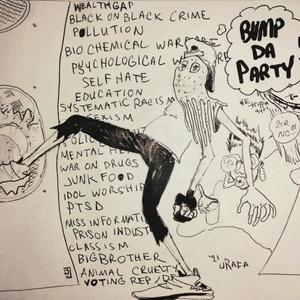 WEALTH GAP
BLACK ON BLACK CRIME
POLLUTION
BIO CHEMICAL
PSYCHOLOGICAL
SELF HATE
EDUCATION
SYSTEMATIC RACISM
SEXISM
MENTAL
WAR ON DRUGS
JUNK FOOD
IDOL WORSHIP
PTSD
MISS INFORMATI
PRISON INDUST
CLASSISM
BIG BROTHER
ANIMAL CRUELTY
VOTING REP/
BUMP
DA
PARTY
SIR,
NO!
'21